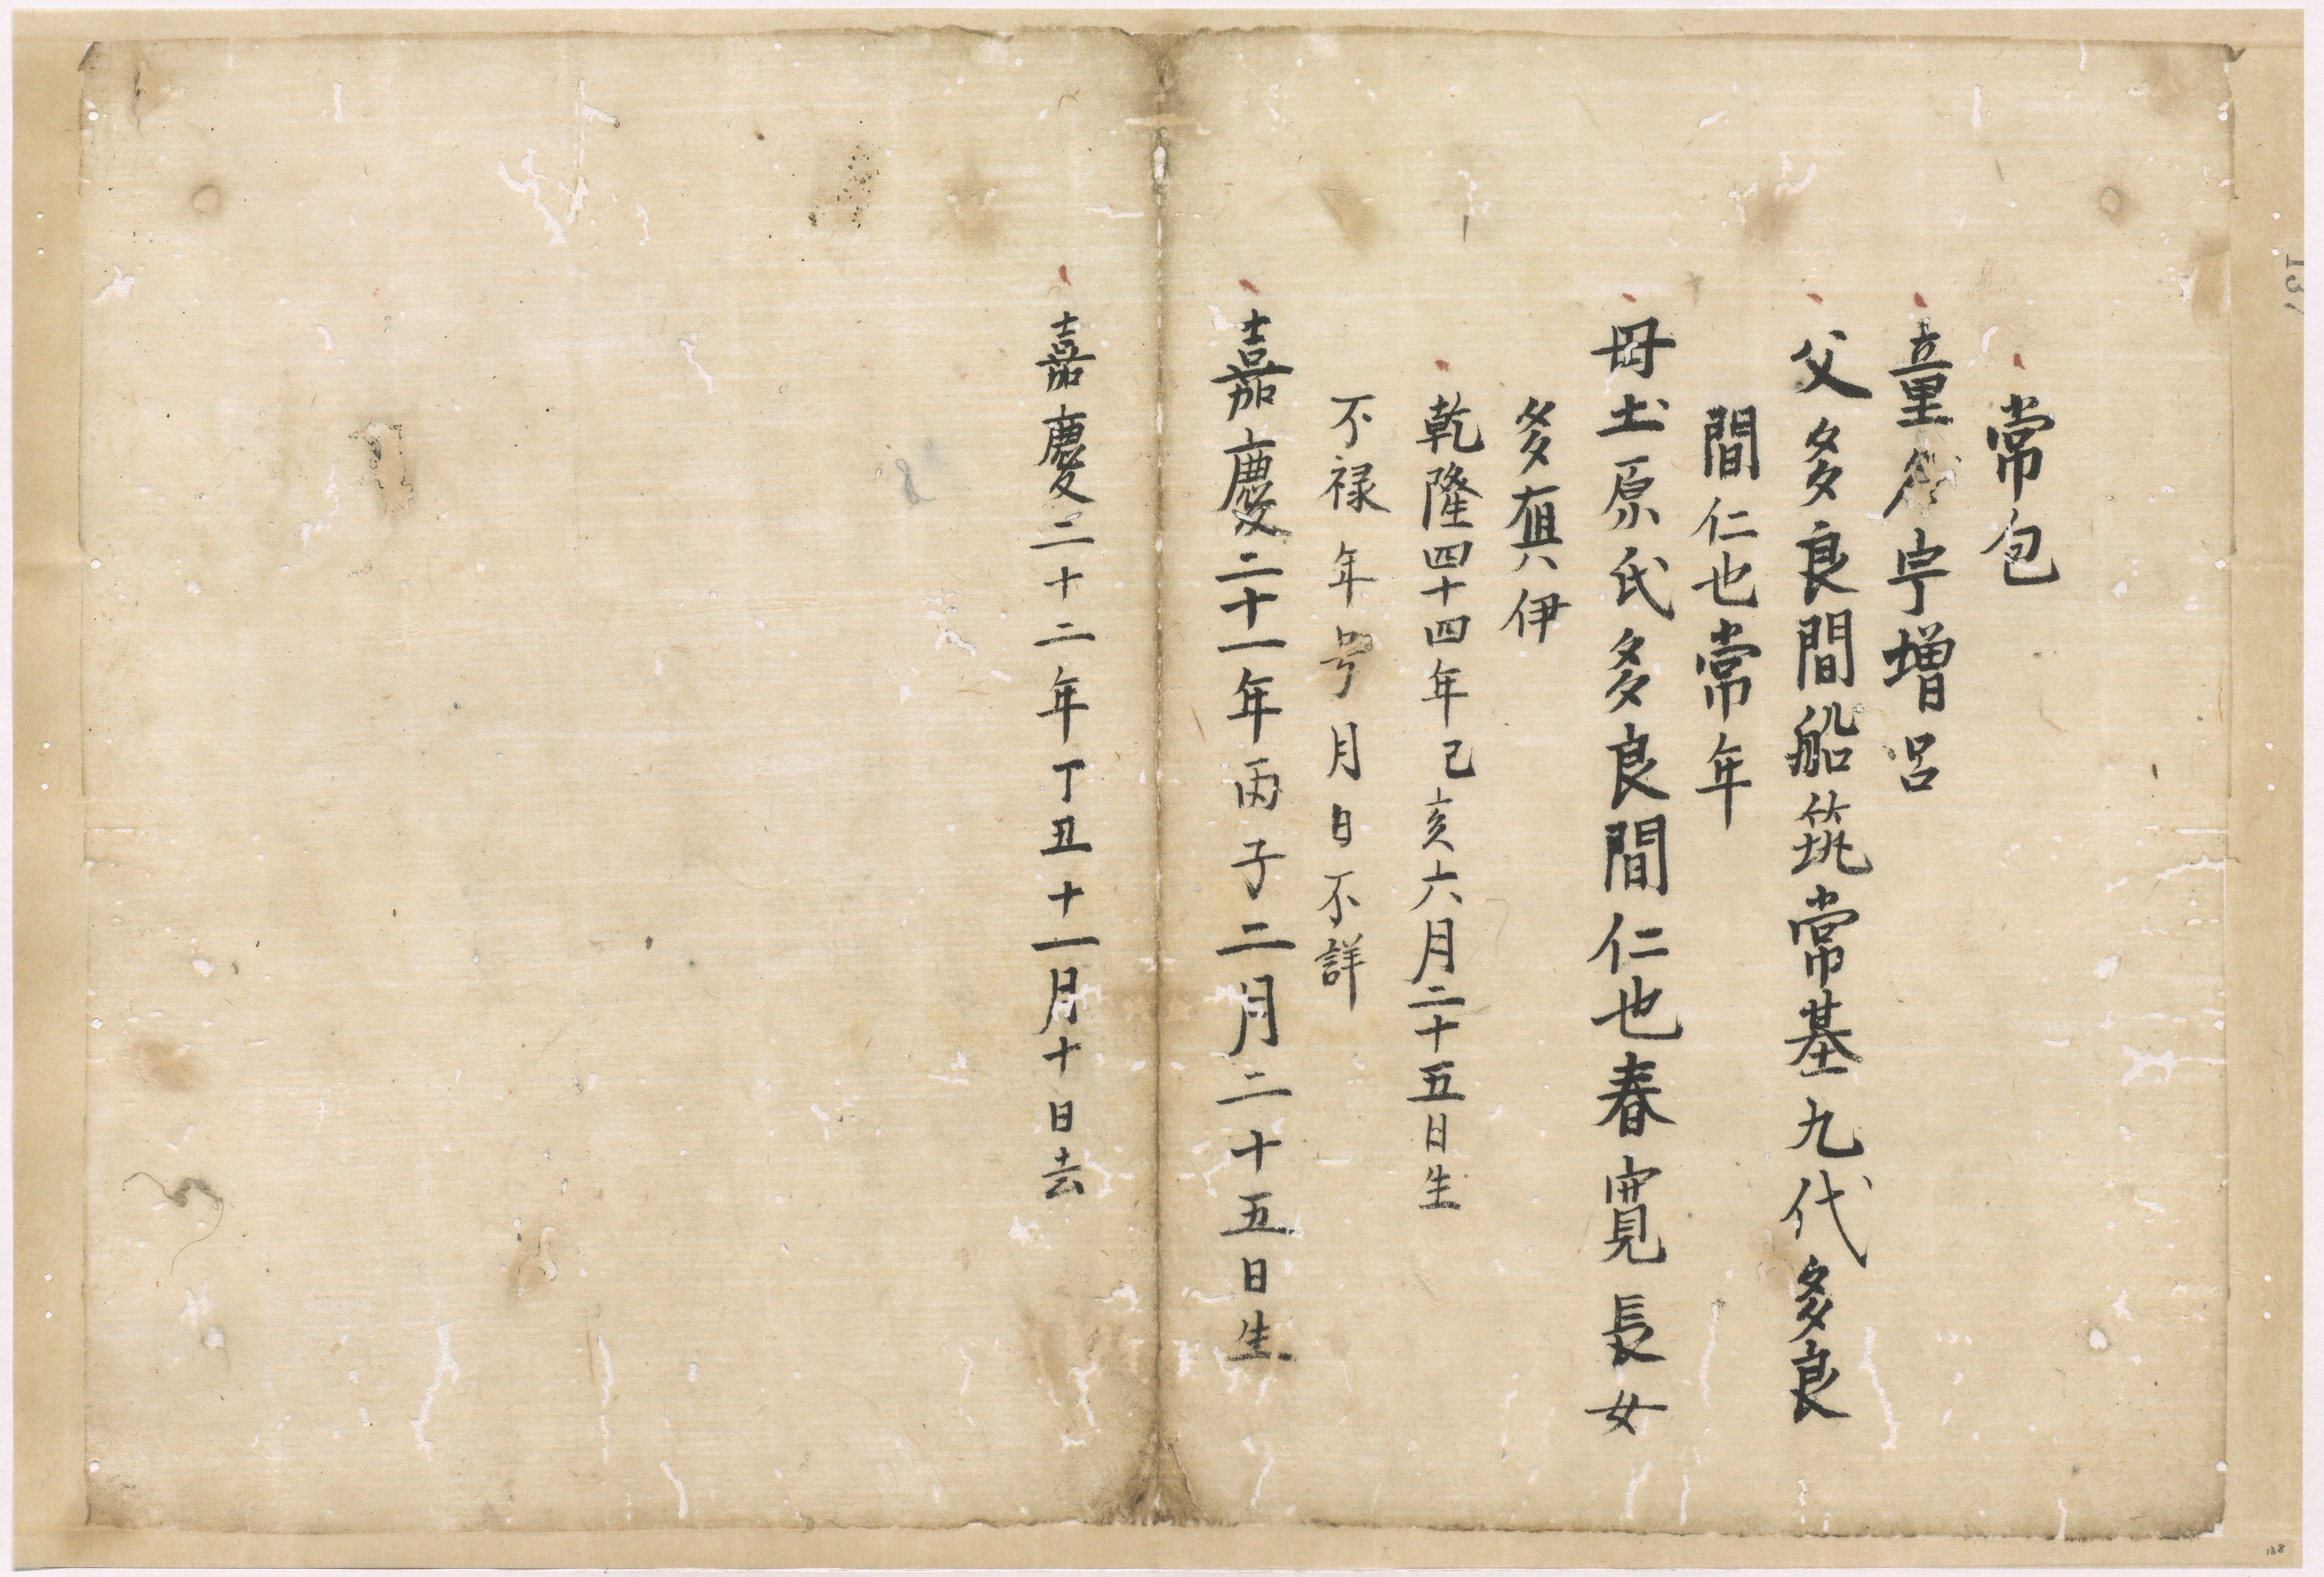 常包
童名宇増呂
父多良間船筑常基九代多良
間仁也常年
母土原氏多良間仁也春寛長女
多奥伊
乾隆四十四年己亥六月二十五日生
不禄年号月日不詳
嘉慶二十一年丙子二月二十五日生
嘉慶二十二年丁丑十一月十日去
8
137
138